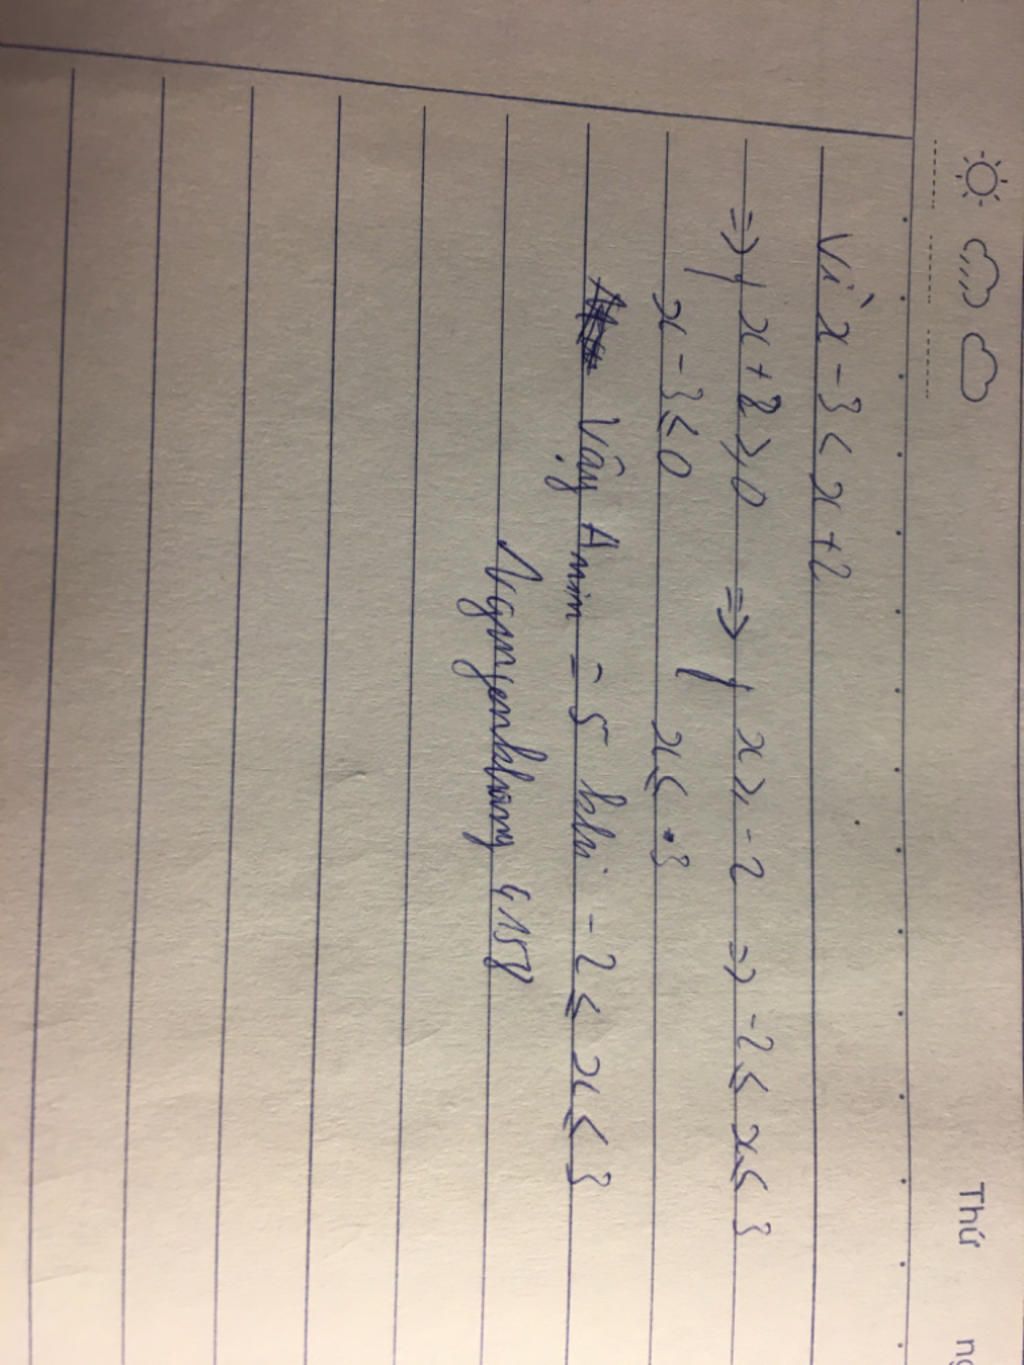 Thứ
Vì x - 3 < x + 2
=> { x + 2 ≥ 0 => { x ≥ -2 => -2 ≤ x ≤ 3
x - 3 ≤ 0 x ≤ 3
Vậy Amin = 5 khi -2 ≤ x ≤ 3
Nguyenkhang 4158